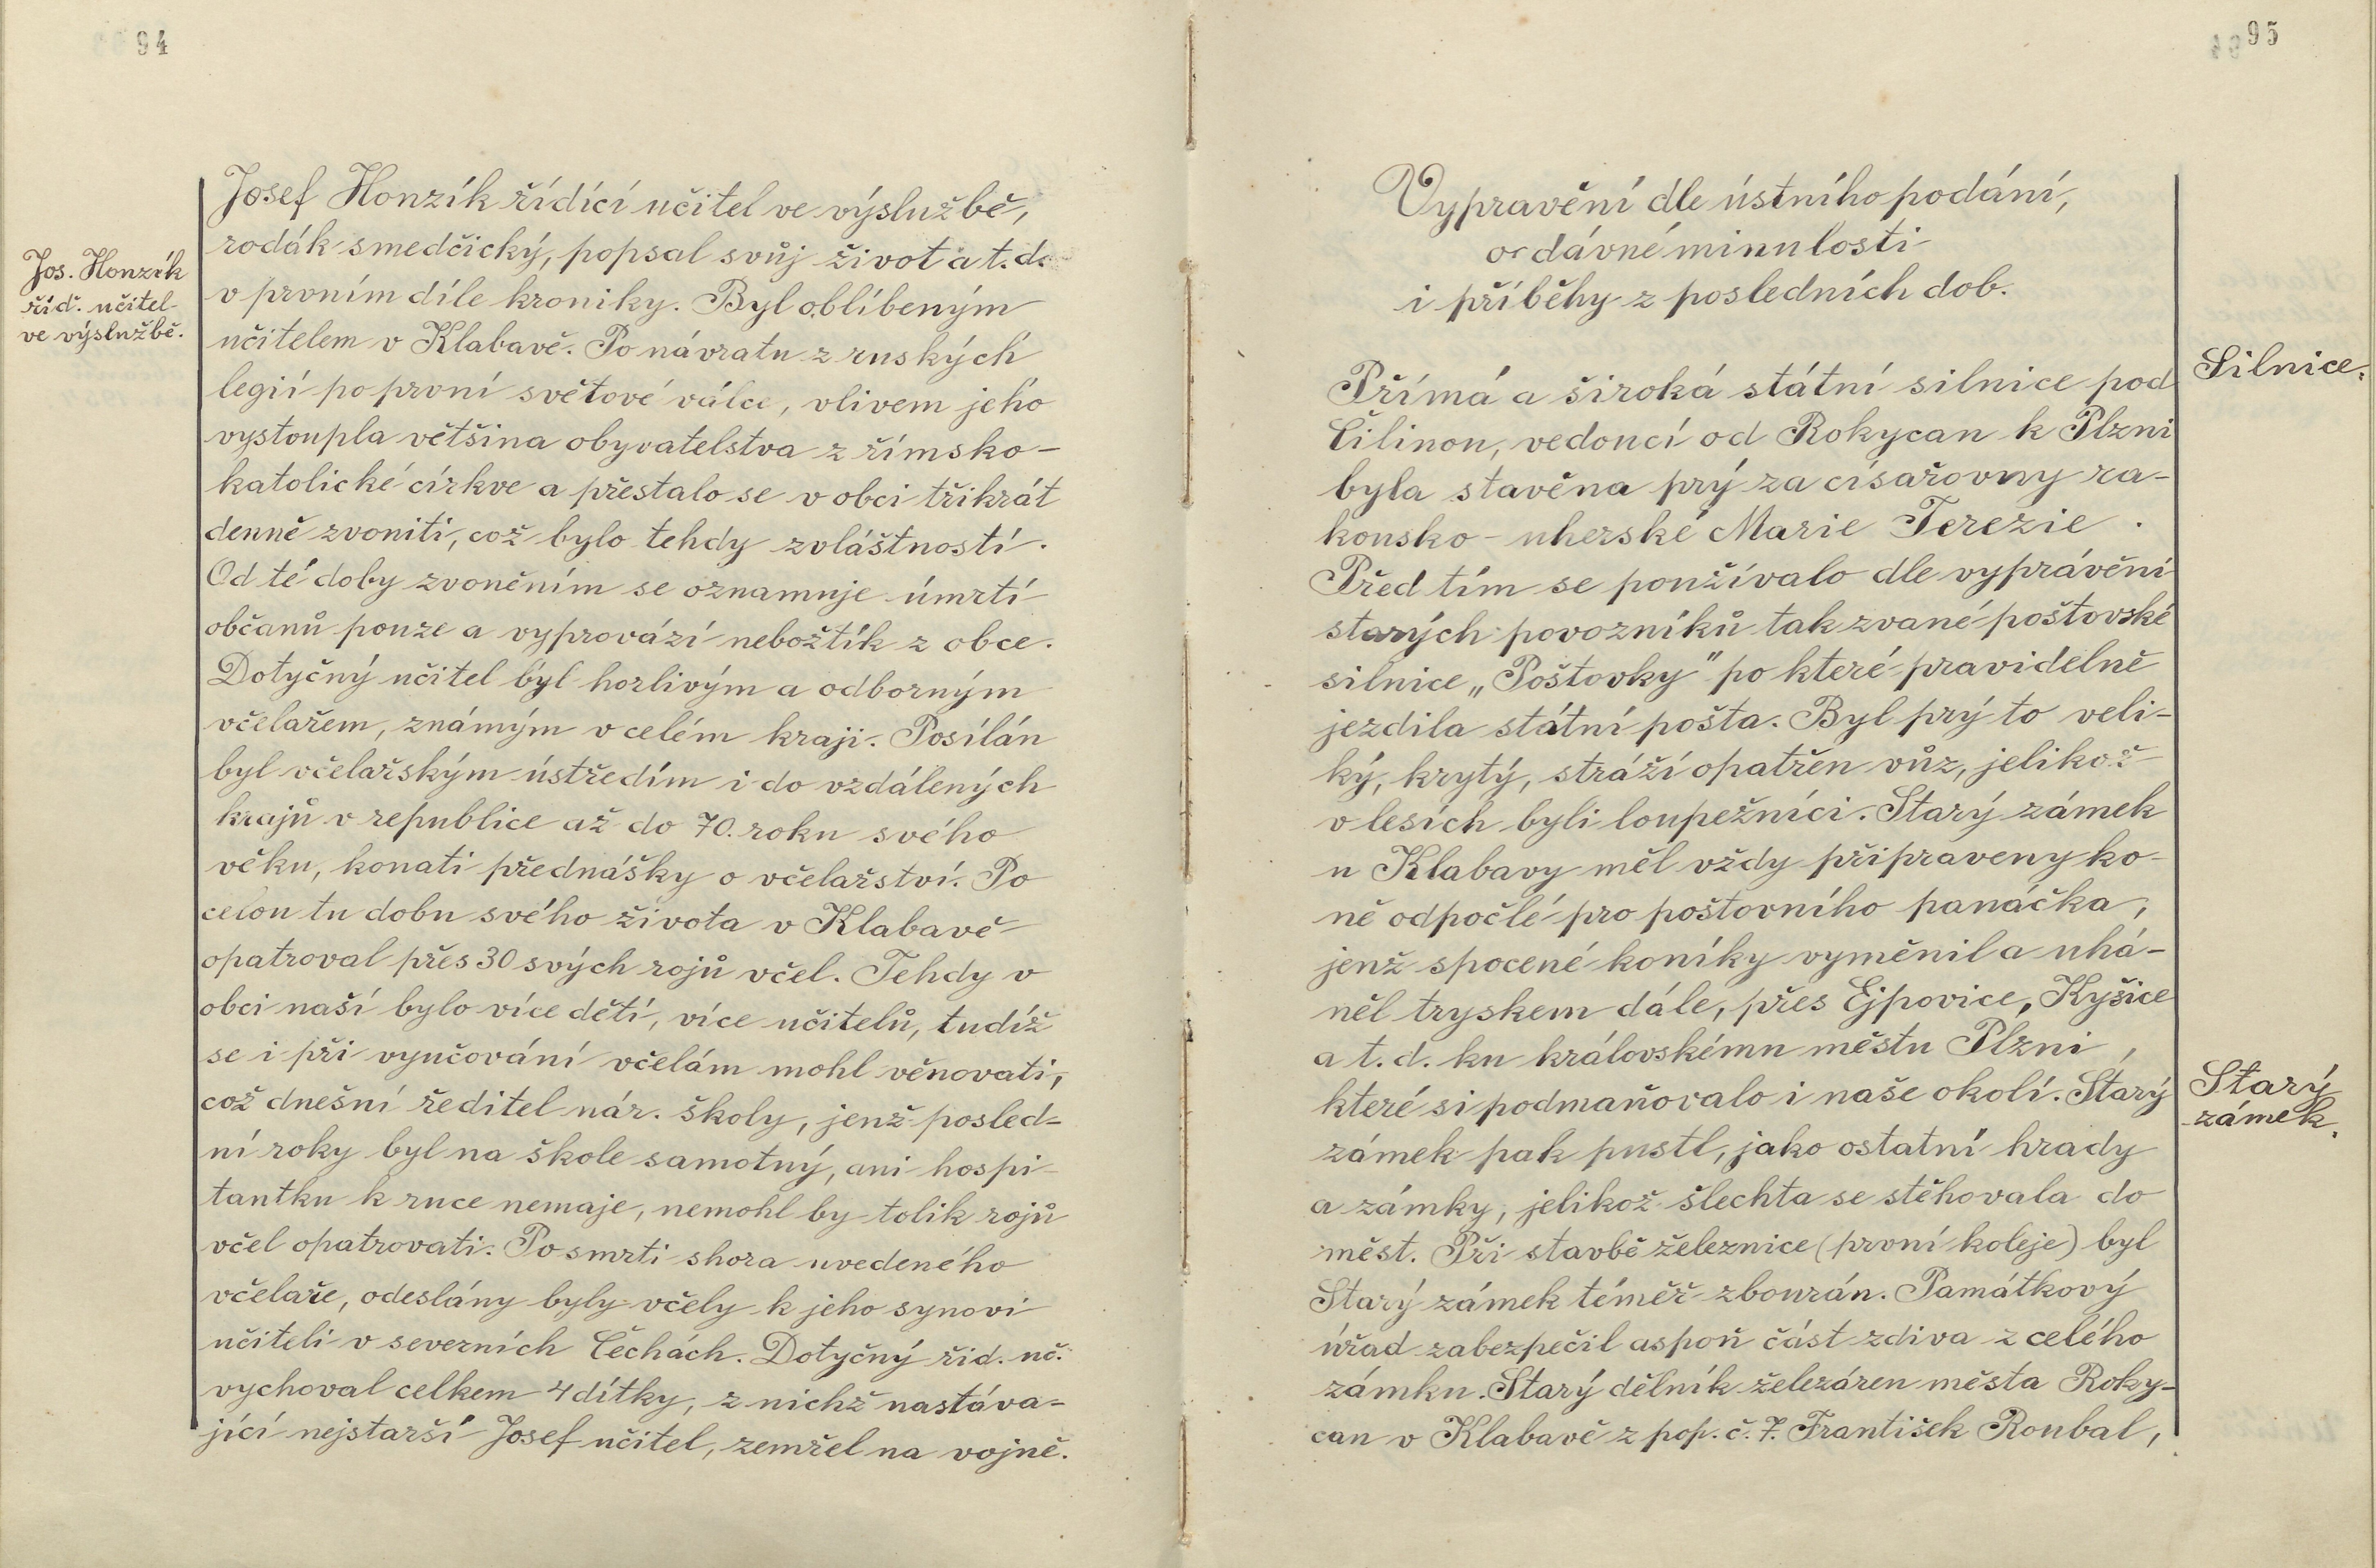 94
Jos. Honzík
říd. učitel
ve výslužbě.
Josef Honzík řídící učitel ve výslužbě,
rodák smedčický, popsal svůj život a t. d.
v prvním díle kroniky. Byl oblíbeným
učitelem v Klabavě. Po návratu z ruských
legií po první světové válce, vlivem jeho
vystoupla většina obyvatelstva z římsko-
katolické církve a přestalo se v obci třikrát
denně zvoniti, což bylo tehdy zvláštností.
Od té doby zvoněním se oznamuje úmrtí
občanů pouze a vyprovází nebožtík z obce.
Dotyčný učitel byl horlivým a odborným
včelařem, známým v celém kraji. Posílán
byl včelařským ústředím i do vzdálených
krajů v republice až do 70. roku svého
věku, konati přednášky o včelařství. Po
celou tu dobu svého života v Klabavě
opatroval přes 30 svých rojů včel. Tehdy v
obci naší bylo více dětí, více učitelů, tudíž
se i při vyučování včelám mohl věnovati,
což dnešní ředitel nár. školy, jenž posled-
ní roky byl na škole samotný, ani hospi-
tantku k ruce nemaje, nemohl by tolik rojů
včel opatrovati. Po smrti shora uvedeného
včelaře, odeslány byly včely k jeho synovi
učiteli v severních Čechách. Dotyčný říd. uč.
vychoval celkem 4 dítky, z nichž nastáva-
jící nejstarší Josef učitel, zemřel na vojně.
95
Vypravění dle ústního podání,
o dávné minulosti
i příběhy z posledních dob.
Silnice.
Přímá a široká státní silnice pod
Čilinou, vedoucí od Rokycan k Plzni
byla stavěna prý za císařovny ra-
kousko-uherské Marie Terezie.
Před tím se používalo dle vyprávění
starých povozníků tak zvané poštovské
silnice „Poštovky" po které pravidelně
jezdila státní pošta. Byl prý to veli-
ký, krytý, stráží opatřen vůz, jelikož
v lesích byli loupežníci. Starý zámek
u Klabavy měl vždy připraveny ko-
ně odpočlé pro poštovního panáčka,
jenž spocené koníky vyměnil a uhá-
něl tryskem dále, přes Ejpovice, Kyšice
a t. d. ku královskému městu Plzni,
které si podmaňovalo i naše okolí. Starý
Starý
zámek.
zámek pak pustl, jako ostatní hrady
a zámky, jelikož šlechta se stěhovala do
měst. Při stavbě železnice (první koleje) byl
Starý zámek téměř zbourán. Památkový
úřad zabezpečil aspoň část zdiva z celého
zámku. Starý dělník železáren města Roky-
can v Klabavě z pop. č. 7. František Roubal,